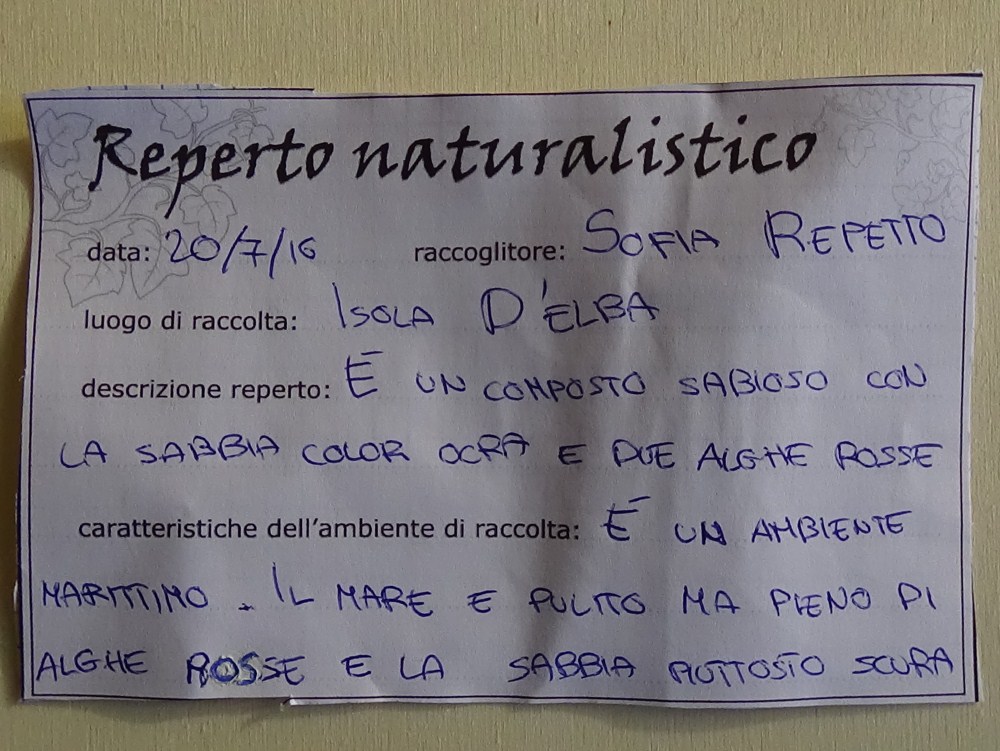 Reperto naturalistico
data: 20/7/16 raccoglitore: SOFIA REPETTO
luogo di raccolta: ISOLA D'ELBA
descrizione reperto: É UN COMPOSTO SABIOSO CON
LA SABBIA COLOR OCRA E DUE ALGHE ROSSE
caratteristiche dell'ambiente di raccolta: É UN AMBIENTE
MARITTIMO. IL MARE E PULITO MA PIENO DI
ALGHE ROSSE E LA SABBIA PIUTTOSTO SCURA